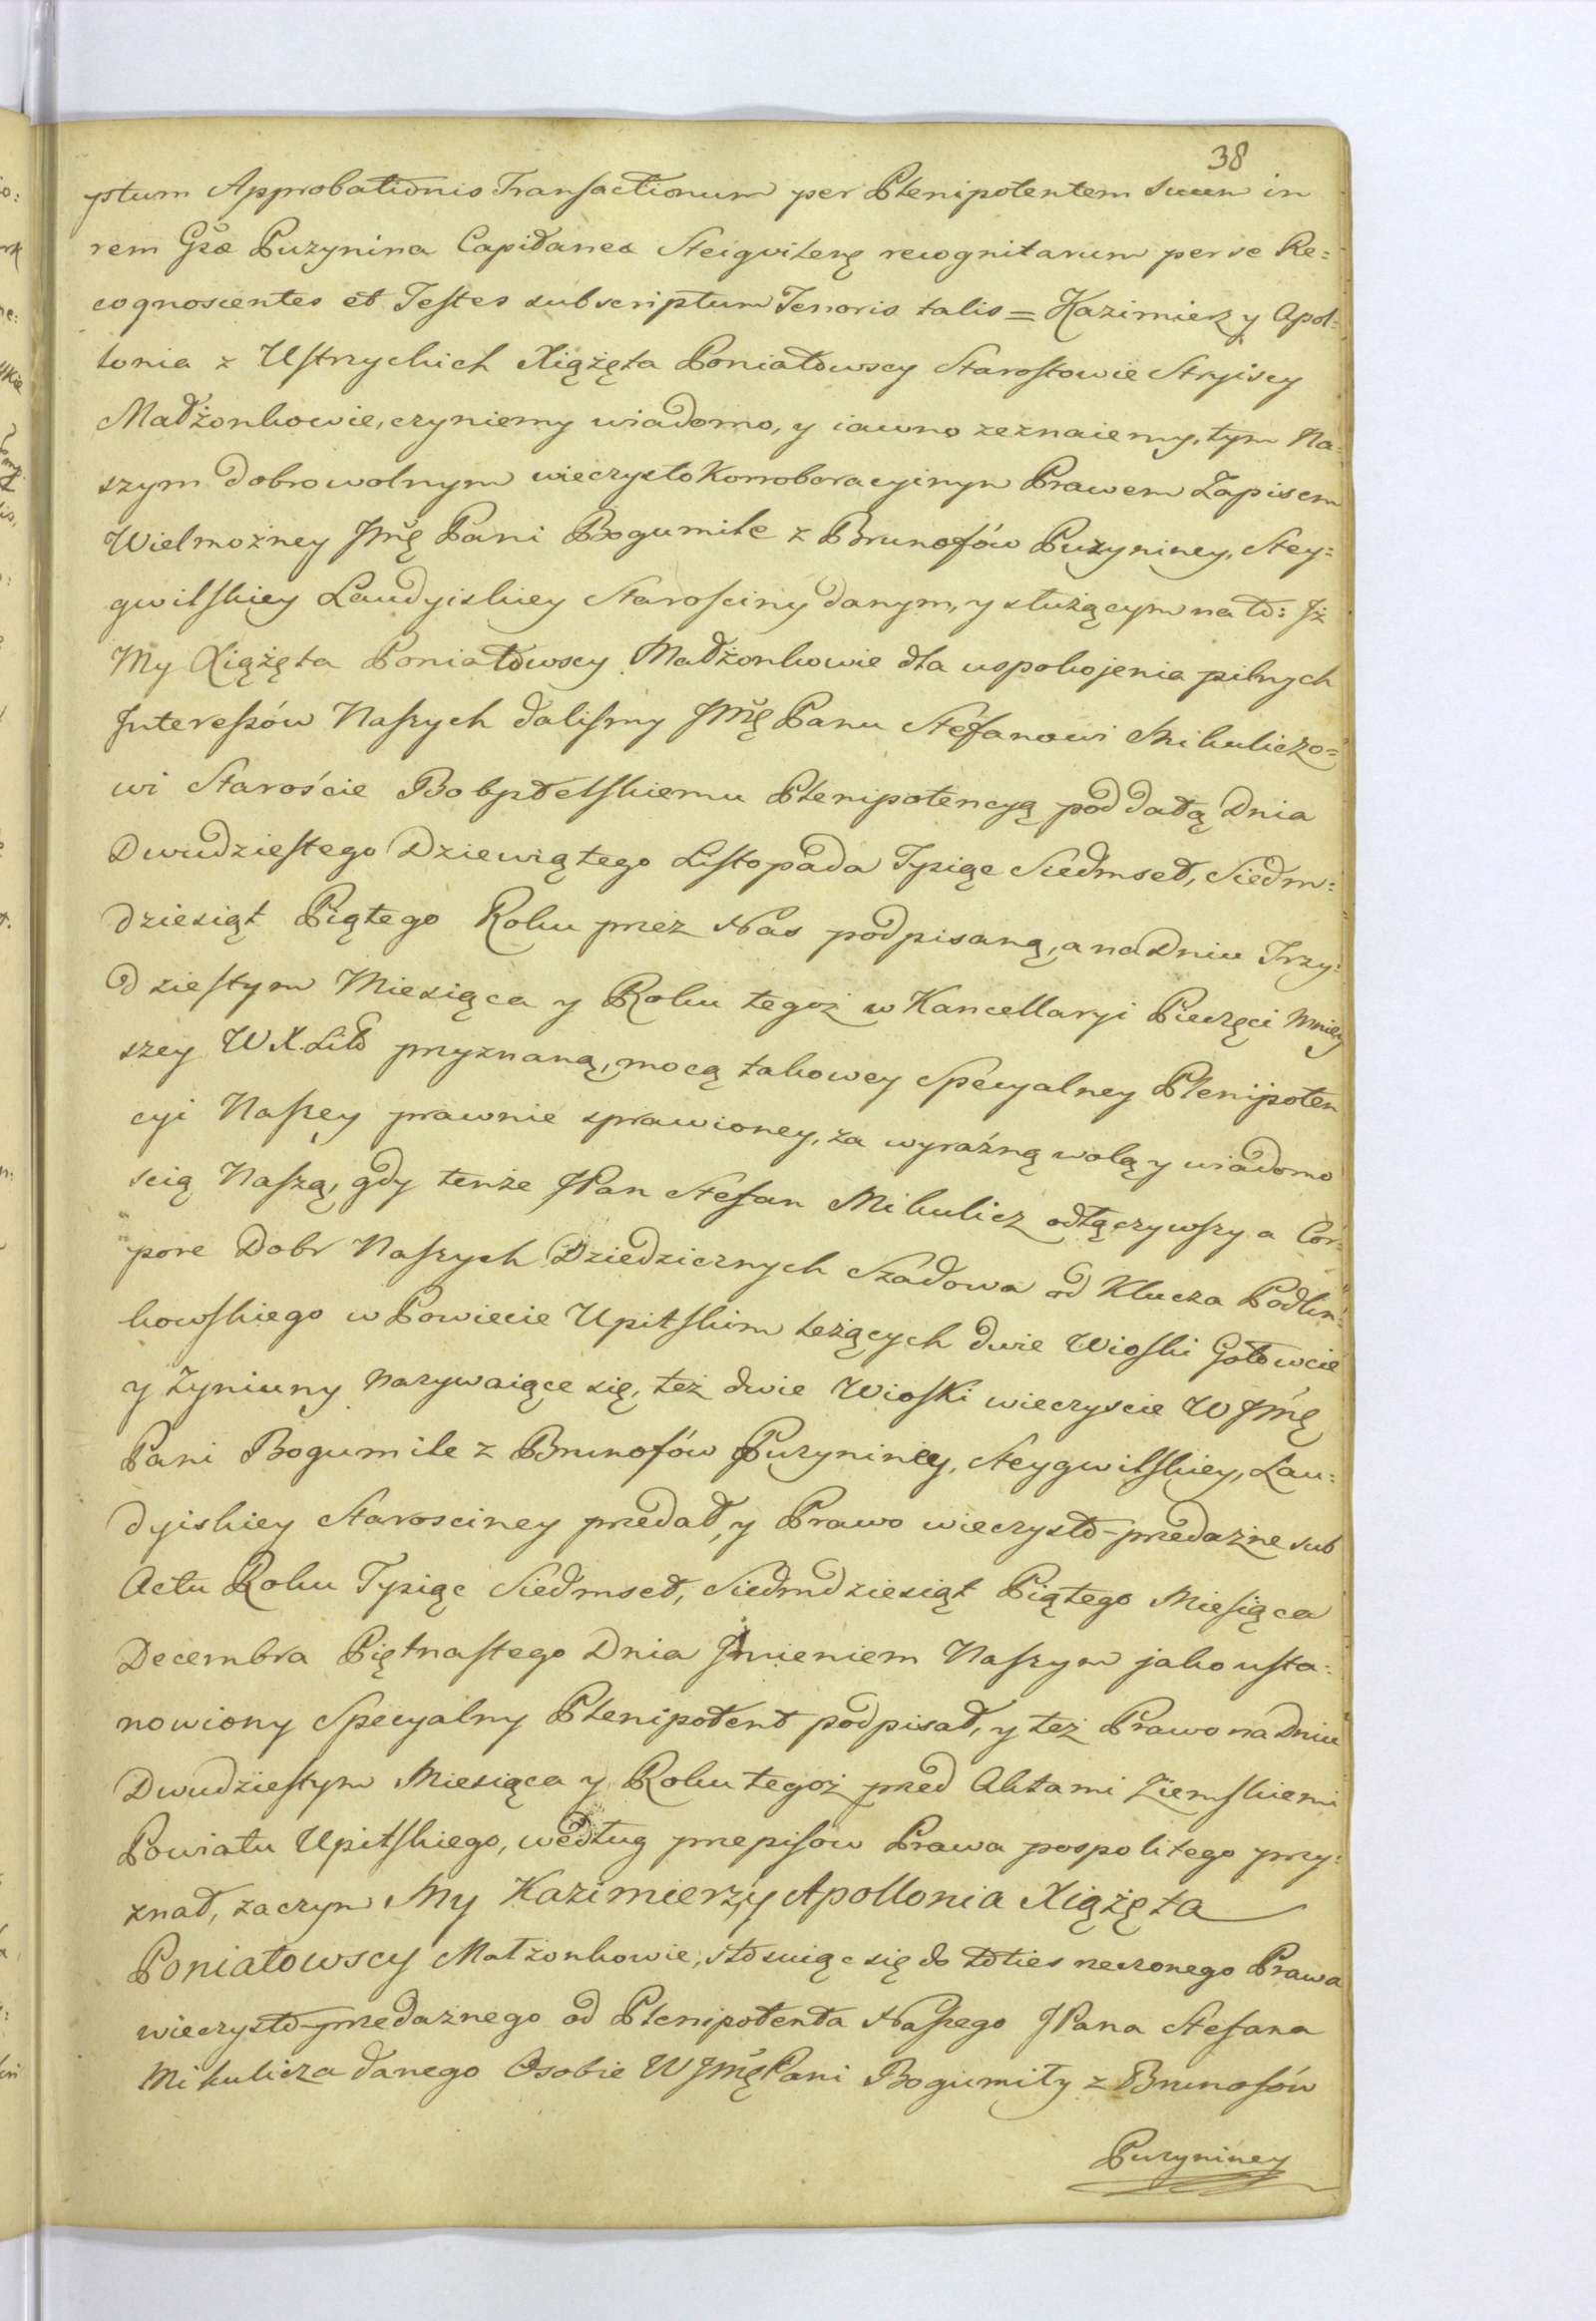 38
ptum Approbationis Transactionum per Plenipotentem suum in
rem Gsae Puzynina Capitanea Steigvilenę recognitarum per se Re=
cognoscentes et Testes subscriptum Tenoris talis = Kazimierz y Apol=
lonia z Ustrzyckich Xiążęta Poniatowscy Starostowie Stryiscy
Małżonkowie, czyniemy wiadomo, y iawno zeznaiemy, tym Na=
szym dobrowolnym wieczysto Korroboracyinym Prawem Zapisem
Wielmożney Jmę Pani Bogumile z Brunofów Puzyniney, Stey=
gwilskiey Laudyiskiey Starościny danym, y służącym na to: Jż
My Xiążęta Poniatowscy Małżonkowie dla uspokojenia pilnych
Interessów Naszych daliśmy Jmę Panu Stefanowi Mikuliczo=
wi Staroście Bobptelskiemu Plenipotencyą pod datą Dnia
Dwudziestego Dziewiątego Listopada Tysiąc Siedmset, Siedm=
dziesiąt Piątego Roku przez Nas podpisaną, a na Dniu Trzy=
dziestym Miesiąca y Roku tegoż w Kancellaryi Pieczęci Mniey
szey W.X.Litt przyznaną, mocą takowey Specyalney Plenipoten
cyi Naszey prawnie sprawioney, za wyraźną wolą y wiadomo
scią Naszą, gdy tenże JPan Stefan Mikulicz odłączywszy a Cor=
pore Dobr Naszych Dziedzicznych Szadowa od Klucza Podlin=
kowskiego w Powiecie Upitskim leżących dwie Wioski Gotowcie
y Zyniuny nazywaiące się, też dwie Wioski wieczyscie W Jmę
Pani Bogumile z Brunofów Puzyniney, Steygwilskiey, Lau=
dyiskiey Starosciney przedał, y Prawo wieczysto-przedażne sub
Actu Roku Tysiąc Siedmset, Siedmdziesiąt Piątego Miesiąca
Decembra Piętnastego Dnia Jmieniem Naszym jako usta=
nowiony Specyalny Plenipotent podpisał, y też Prawo na Dniu
Dwudziestym Miesiąca y Roku tegoż przed Aktami Ziemskiemi
Powiatu Upitskiego, według przepisow Prawa pospolitego przy=
znał, zaczym My Kazimierz y Apollonia Xiążęta
Poniatowscy Małżonkowie, stosuiąc się do toties rzeczonego Prawa
wieczysto-przedażnego od Plenipotenta Naszego JPana Stefana
Mikulicza danego Osobie W Jmę Pani Bogumiły z Brunofów
Puzyniney